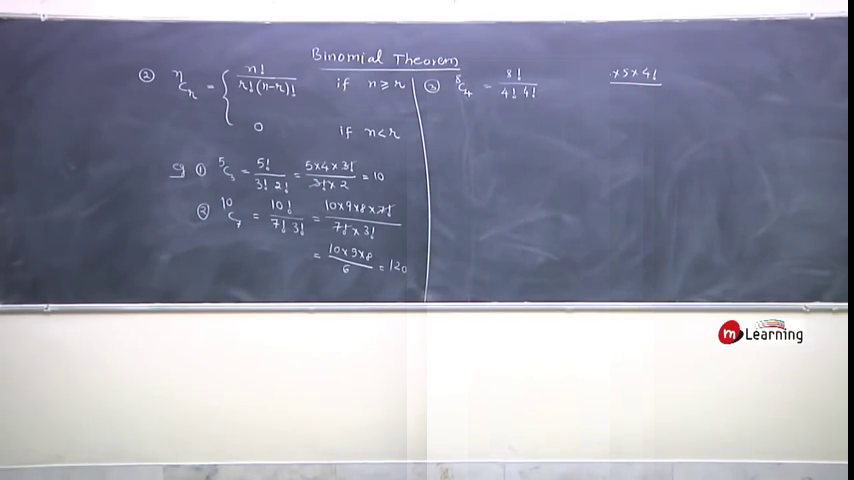 Binomial Theorem
② ⁿCᵣ = { n! / r!(n-r)! if n ≥ r
0 if n < r
eg ① ⁵C₃ = 5! / 3! 2! = 5×4×3! / 3!×2 = 10
② ¹⁰C₇ = 10! / 7! 3! = 10×9×8×7! / 7!×3!
= 10×9×8 / 6 = 120
③ ⁸C₄ = 8! / 4! 4! ×5×4!
m Learning